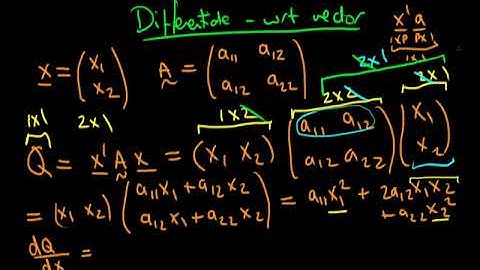 Differentiate - wrt vector
x' a
1xp px1
1x1
x = (x₁ x₂) A = (a₁₁ a₁₂ a₁₂ a₂₂)
2x1
1x1 2x1 1x2 2x2 2x1
Q = x' A x = (x₁ x₂) (a₁₁ a₁₂ a₁₂ a₂₂) (x₁ x₂)
= (x₁ x₂) (a₁₁x₁ + a₁₂x₂ a₁₂x₁ + a₂₂x₂) = a₁₁x₁² + 2a₁₂x₁x₂ + a₂₂x₂²
dQ/dx =